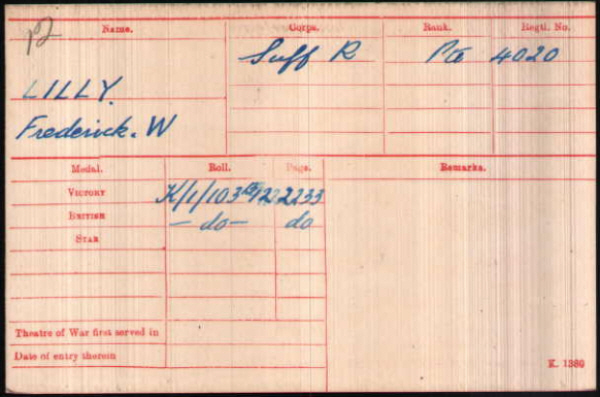 Name. Corps. Rank. Regtl. No.
Suff R Pte 4020
LILLY.
Frederick. W
Medal. Roll. Page.
Remarks.
VICTORY K/1/103 2233
BRITISH —do— do
STAR
Theatre of War first served in
Date of entry therein
K. 1380